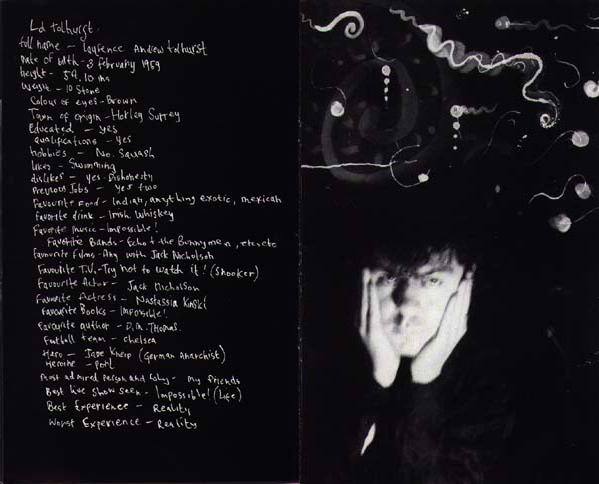 Lol tolhurst.
full name - Laurence Andrew tolhurst
Date of birth - 3 february 1959
height - 5ft. 10 ins
Weight - 10 Stone
Colour of eyes - Brown
Town of origin - Horley Surrey
Educated - yes
qualifications - yes
hobbies - No. Squash
likes - Swimming
dislikes - yes. Dishonesty
Previous Jobs - yes two
Favourite Food - Indian, anything exotic, mexican
favorite drink - Irish Whiskey
Favorite music - Impossible!
Favorite Bands - Echo & the Bunnymen, etc etc
favourite films - Any with Jack Nicholson
Favourite T.V. - Try not to watch it! (Snooker)
Favourite Actor - Jack Nicholson
Favourite Actress - Nastassia Kinski
Favourite Books - Impossible!
Favourite author - D.M. Thomas.
Football team - chelsea
Hero - (German Anarchist)
Heroine -
Most admired person and - my friends
Best live show seen - Impossible! (Life)
Best Experience - Reality
Worst Experience - Reality